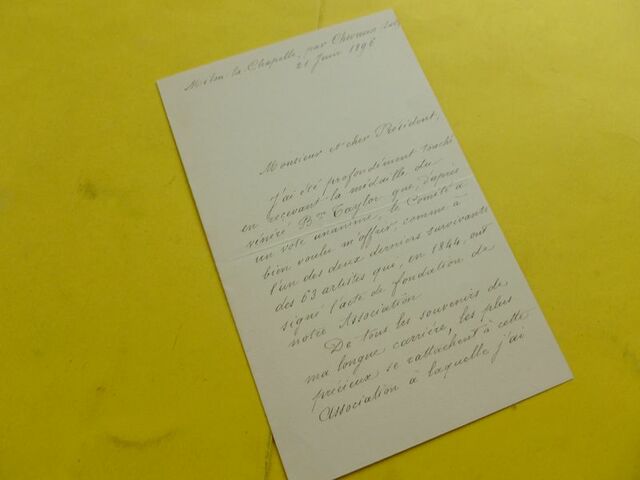 Milon-la-Chapelle, par Chevreuse
21 Juin 1896
Monsieur et cher Président,
J'ai été profondément touché
en recevant la médaille du
vénéré Bon Taylor que, d'après
un vote unanime, le Comité a
bien voulu m'offrir, comme à
l'un des deux derniers survivants
des 63 artistes que, en 1844, ont
signé l'acte de fondation de
notre Association
De tous les souvenirs de
ma longue carrière, les plus
précieux se rattachent à cette
Association à laquelle j'ai